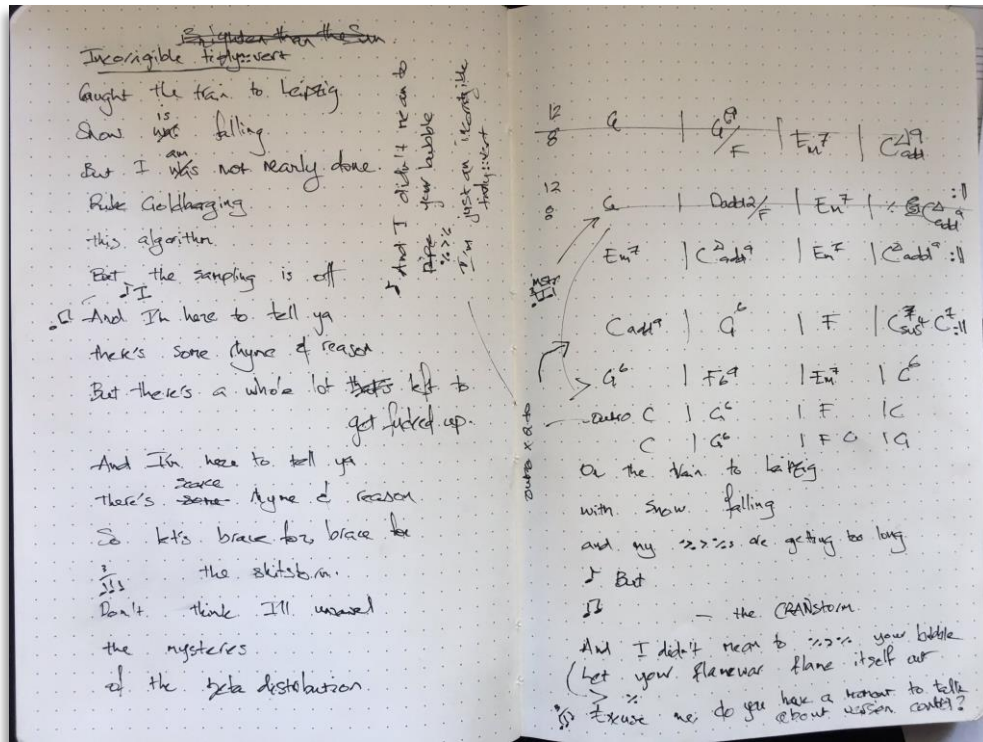 Brighter than the Sun
Incorrigible tidy::vert
Caught the train to Leipzig
is
Snow was falling
am
But I was not nearly done
Rube Goldberging
this algorithm
But the sampling is off
♪ I
And I'm here to tell ya
there's some rhyme & reason
But there's a whole lot that's left to
get fucked up.
And I'm here to tell ya
scarce
There's some rhyme & reason
So let's brace for, brace for
the shitstorm.
Don't think I'll unravel
the mysteres
of the beta distribution.
♪ And I didn't mean to
Pipe your bubble
%>%
I'm just an incorrigible
tidy::vert
outro x 2 to
12
8 G | G69/F | Em7 | CΔ9 add
12
8 G | Dadd2/F | Em7 | % CΔ add9 :||
Em7 | C add9 | Em7 | C add9 :||
Cadd9 | G6 | F | C7sus4 C7 :||
G6 | F69 | Em7 | C6
outro C | G6 | F | C
C | G6 | F C | G
On the train to Leipzig
with snow falling
and my %>%s are getting too long
♪ But
♫ — the CRANstorm
And I didn't mean to %>% your bubble
Let your flamewar flame itself out
%
Excuse me: do you have a moment to talk
about version control?